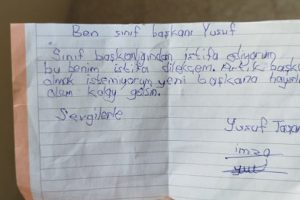 Ben sınıf başkanı Yusuf
"Sınıf başkanlığından istifa ediyorum
bu benim istifa dilekçem. Artık başkan
olmak istemiyorum yeni başkana hayırlı
olsun kolay gelsin.
Sevgilerle
Yusuf
imza